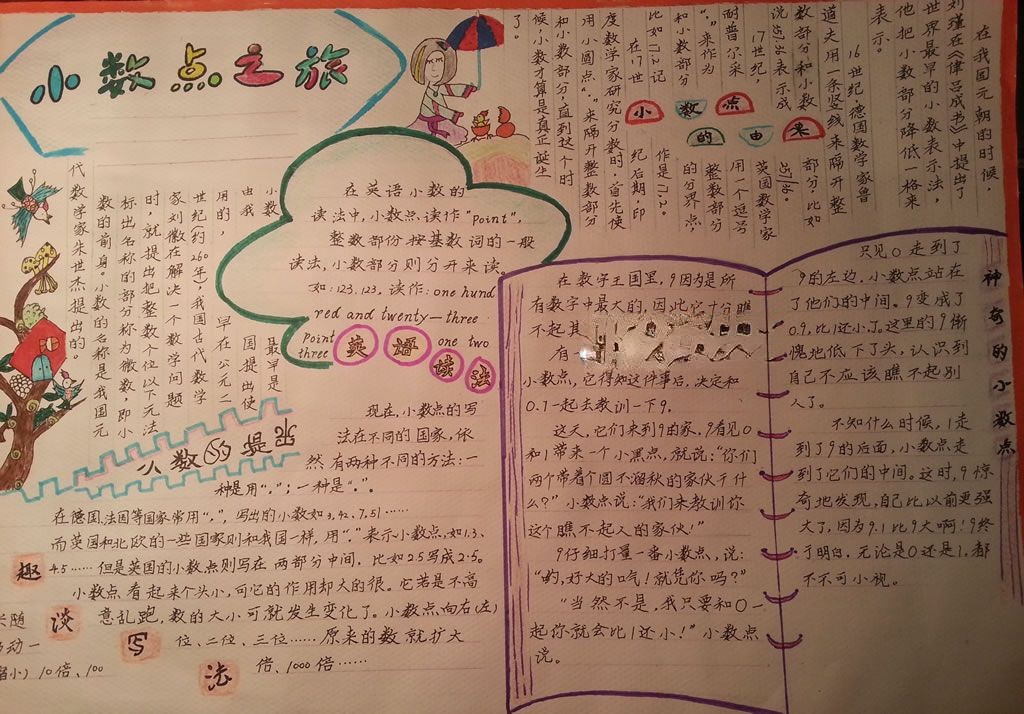 小数点之旅
在我国元朝的时候,
刘瑾在《律吕成书》中提出了
世界最早的小数表示法,
他把小数部分降低一格来
表示。
16世纪,德国数学家鲁
道夫用一条竖线来隔开整
数部分和小数部分,比如
257.36表示成257|36。
17世纪,英国数学家
耐普尔采用一个逗号
“,”来作为整数部分
和小数部分的分界点,
比如17.2记作是17,2。
在17世纪后期,印
度数学家研究分数时,首先使
用小圆点“.”来隔开整数部分
和小数部分,直到这个时
候,小数才算是真正诞生
了。
小数点
的由来
小数最早是
由我国提出使
用的,早在公元三
世纪(约260年),我国古代数学
家刘徽在解决一个数学问题
时,就提出把整数个位以下无法
标出名称的部分称为微数,即小
数的前身。小数的名称是我国元
代数学家朱世杰提出的。
小数的是来
在英语小数的
读法中,小数点读作“Point”,
整数部份按基数词的一般
读法,小数部分则分开来读。
如:123.123,读作:one hund
red and twenty—three
Point one two
three
英语
读法
现在,小数点的写
法在不同的国家,依
然有两种不同的方法:一
种是用“,”;一种是“.”。
在德国、法国等国家常用“,”,写出的小数如3,42、7,51……
而英国和北欧的一些国家则和我国一样,用“.”表示小数点,如1.3、
4.5……但是英国的小数点则写在两部分中间,比如2.5写成2·5。
小数点看起来个头小,可它的作用却大的很。它若是不高
兴随意乱跑,数的大小可就发生变化了。小数点向右(左)
移动一位、二位、三位……原来的数就扩大
(缩小)10倍、100倍、1000倍……
趣
谈
写
法
在数字王国里,9因为是所
有数字中最大的,因此,它十分瞧
不起其
有
小数点,它得知这件事后,决定和
0.1一起去教训一下9。
这天,它们来到9的家,9看见0
和1带来一个小黑点,就说:“你们
两个带着个圆不溜秋的家伙干什
么?”小数点说:“我们来教训你
这个瞧不起人的家伙!”
9仔细打量一番小数点,说:
“哟,好大的口气!就凭你吗?”
“当然不是,我只要和0一
起你就会比1还小!”小数点
说。
只见0走到了
9的左边,小数点站在
了他们的中间。9变成了
0.9,比1还小了。这里的9惭
愧地低下了头,认识到
自己不应该瞧不起别
人了。
不知什么时候,1走
到了9的后面,小数点走
到了它们的中间。这时,9惊
奇地发现,自己比以前更强
大了,因为9.1比9大啊!9终
于明白,无论是0还是1,都
不不可小视。
神奇的小数点